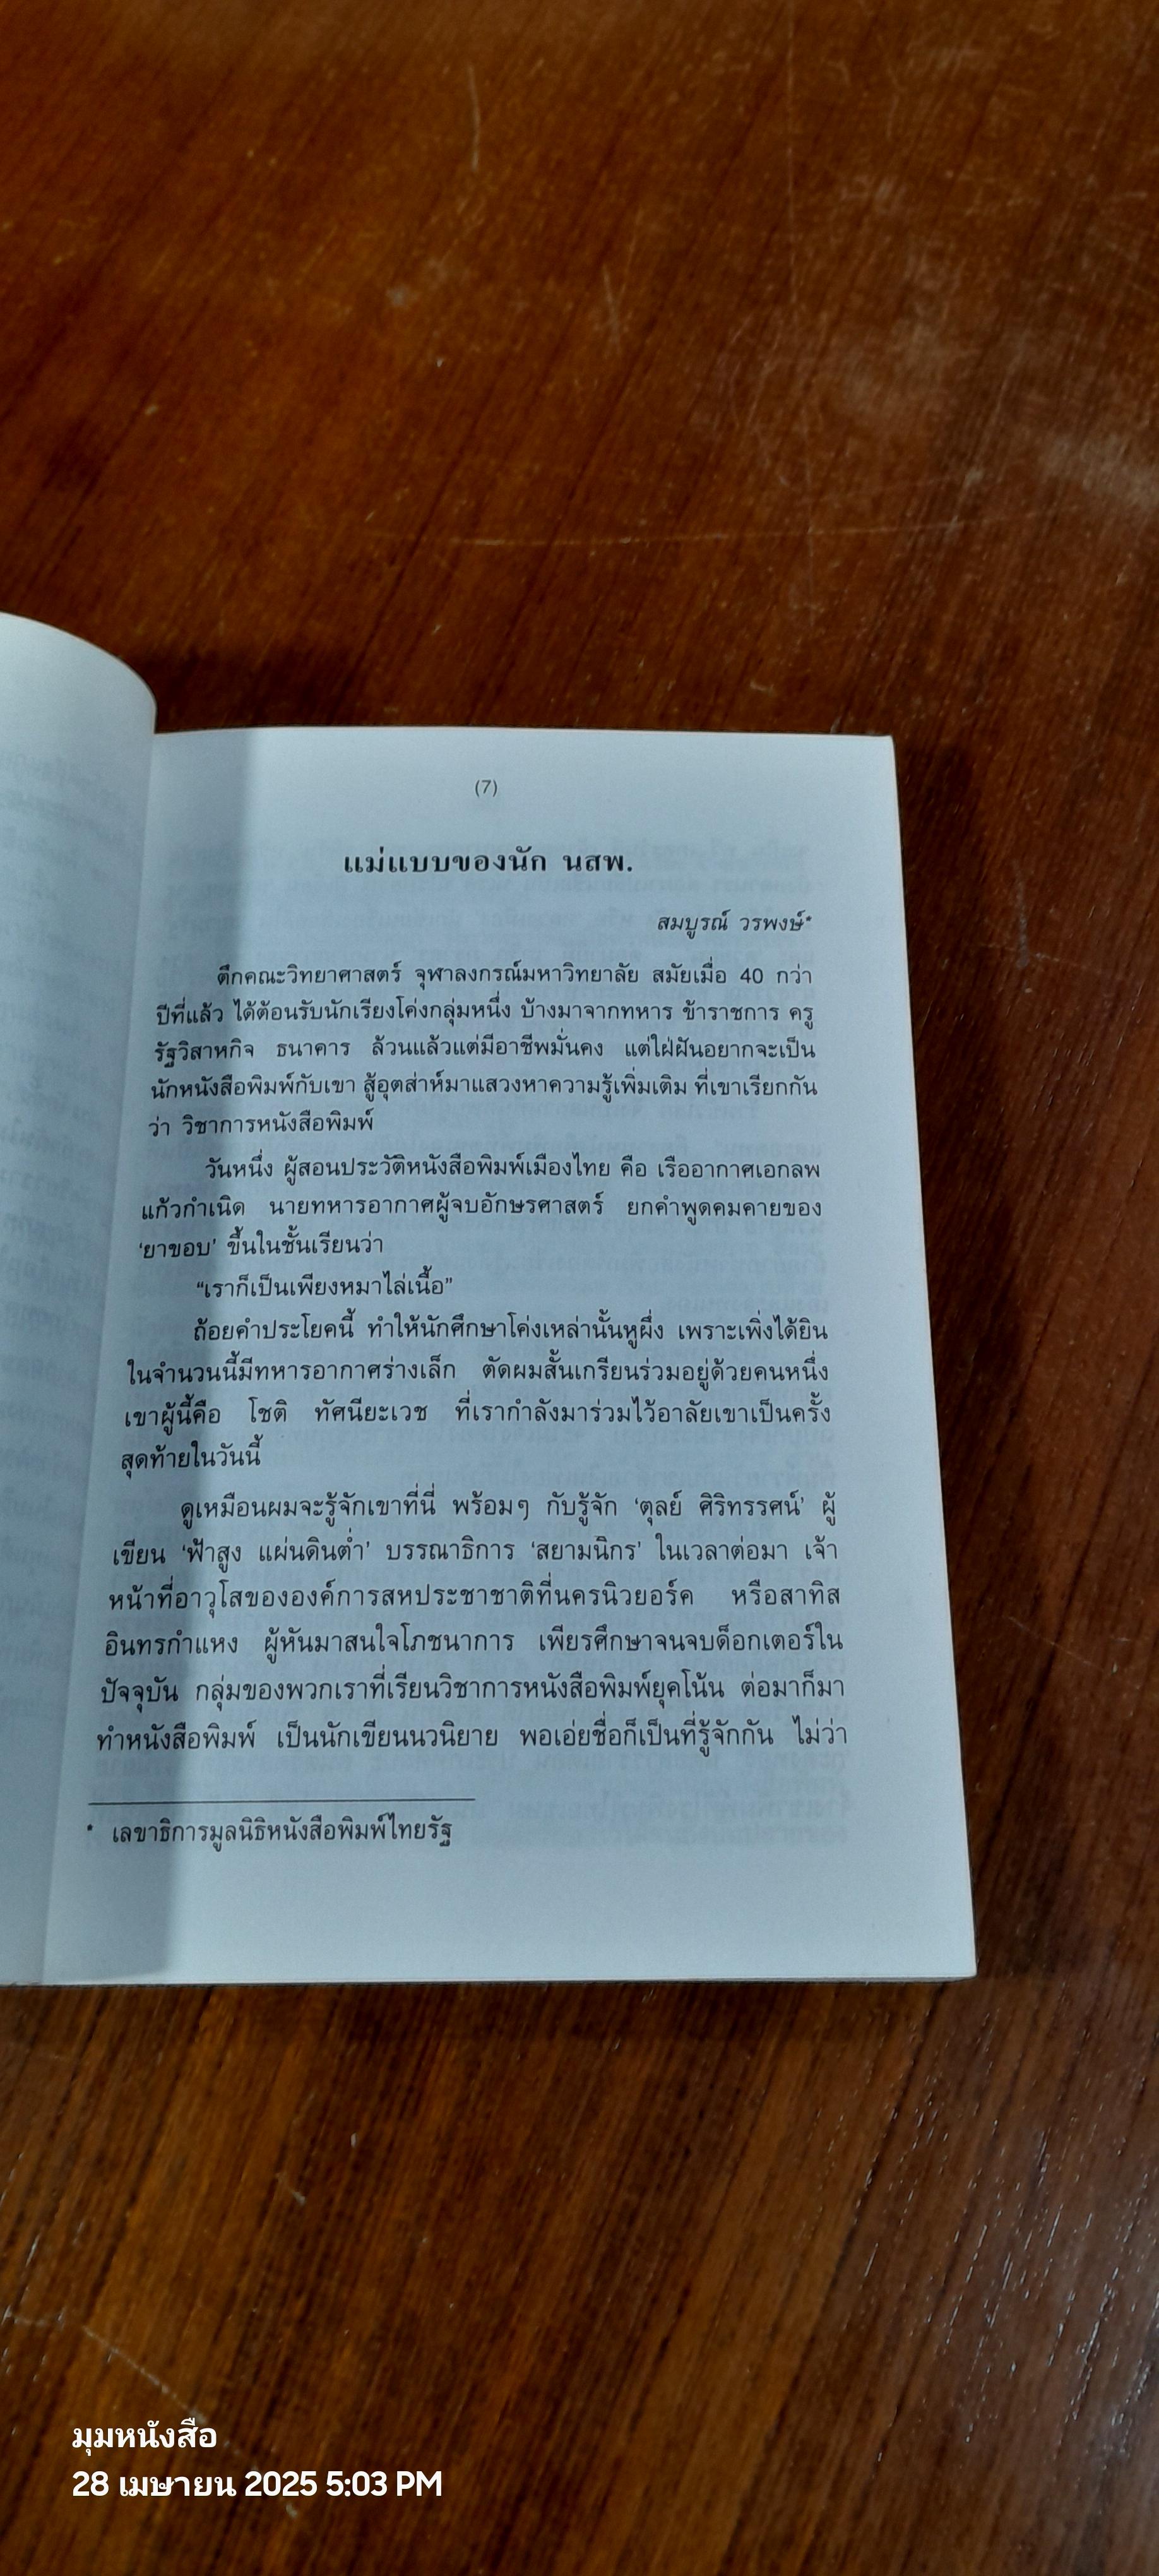 (7)
แม่แบบของนัก นสพ.
สมบูรณ์ วรพงษ์*
ตึกคณะวิทยาศาสตร์ จุฬาลงกรณ์มหาวิทยาลัย สมัยเมื่อ 40 กว่า
ปีที่แล้ว ได้ต้อนรับนักเรียงโค่งกลุ่มหนึ่ง บ้างมาจากทหาร ข้าราชการ ครู
รัฐวิสาหกิจ ธนาคาร ล้วนแล้วแต่มีอาชีพมั่นคง แต่ใฝ่ฝันอยากจะเป็น
นักหนังสือพิมพ์กับเขา สู้อุตส่าห์มาแสวงหาความรู้เพิ่มเติม ที่เขาเรียกกัน
ว่า วิชาการหนังสือพิมพ์
วันหนึ่ง ผู้สอนประวัติหนังสือพิมพ์เมืองไทย คือ เรืออากาศเอกลพ
แก้วกำเนิด นายทหารอากาศผู้จบอักษรศาสตร์ ยกคำพูดคมคายของ
‘ยาขอบ’ ขึ้นในชั้นเรียนว่า
“เราก็เป็นเพียงหมาไล่เนื้อ”
ถ้อยคำประโยคนี้ ทำให้นักศึกษาโค่งเหล่านั้นหูผึ่ง เพราะเพิ่งได้ยิน
ในจำนวนนี้มีทหารอากาศร่างเล็ก ตัดผมสั้นเกรียนร่วมอยู่ด้วยคนหนึ่ง
เขาผู้นี้คือ โชติ ทัศนียะเวช ที่เรากำลังมาร่วมไว้อาลัยเขาเป็นครั้ง
สุดท้ายในวันนี้
ดูเหมือนผมจะรู้จักเขาที่นี่ พร้อมๆ กับรู้จัก ‘ตุลย์ ศิริทรรศน์’ ผู้
เขียน ‘ฟ้าสูง แผ่นดินต่ำ’ บรรณาธิการ ‘สยามนิกร’ ในเวลาต่อมา เจ้า
หน้าที่อาวุโสขององค์การสหประชาชาติที่นครนิวยอร์ค หรือสาทิส
อินทรกำแหง ผู้หันมาสนใจโภชนาการ เพียรศึกษาจนจบด็อกเตอร์ใน
ปัจจุบัน กลุ่มของพวกเราที่เรียนวิชาการหนังสือพิมพ์ยุคโน้น ต่อมาก็มา
ทำหนังสือพิมพ์ เป็นนักเขียนนวนิยาย พอเอ่ยชื่อก็เป็นที่รู้จักกัน ไม่ว่า
* เลขาธิการมูลนิธิหนังสือพิมพ์ไทยรัฐ
มุมหนังสือ
28 เมษายน 2025 5:03 PM